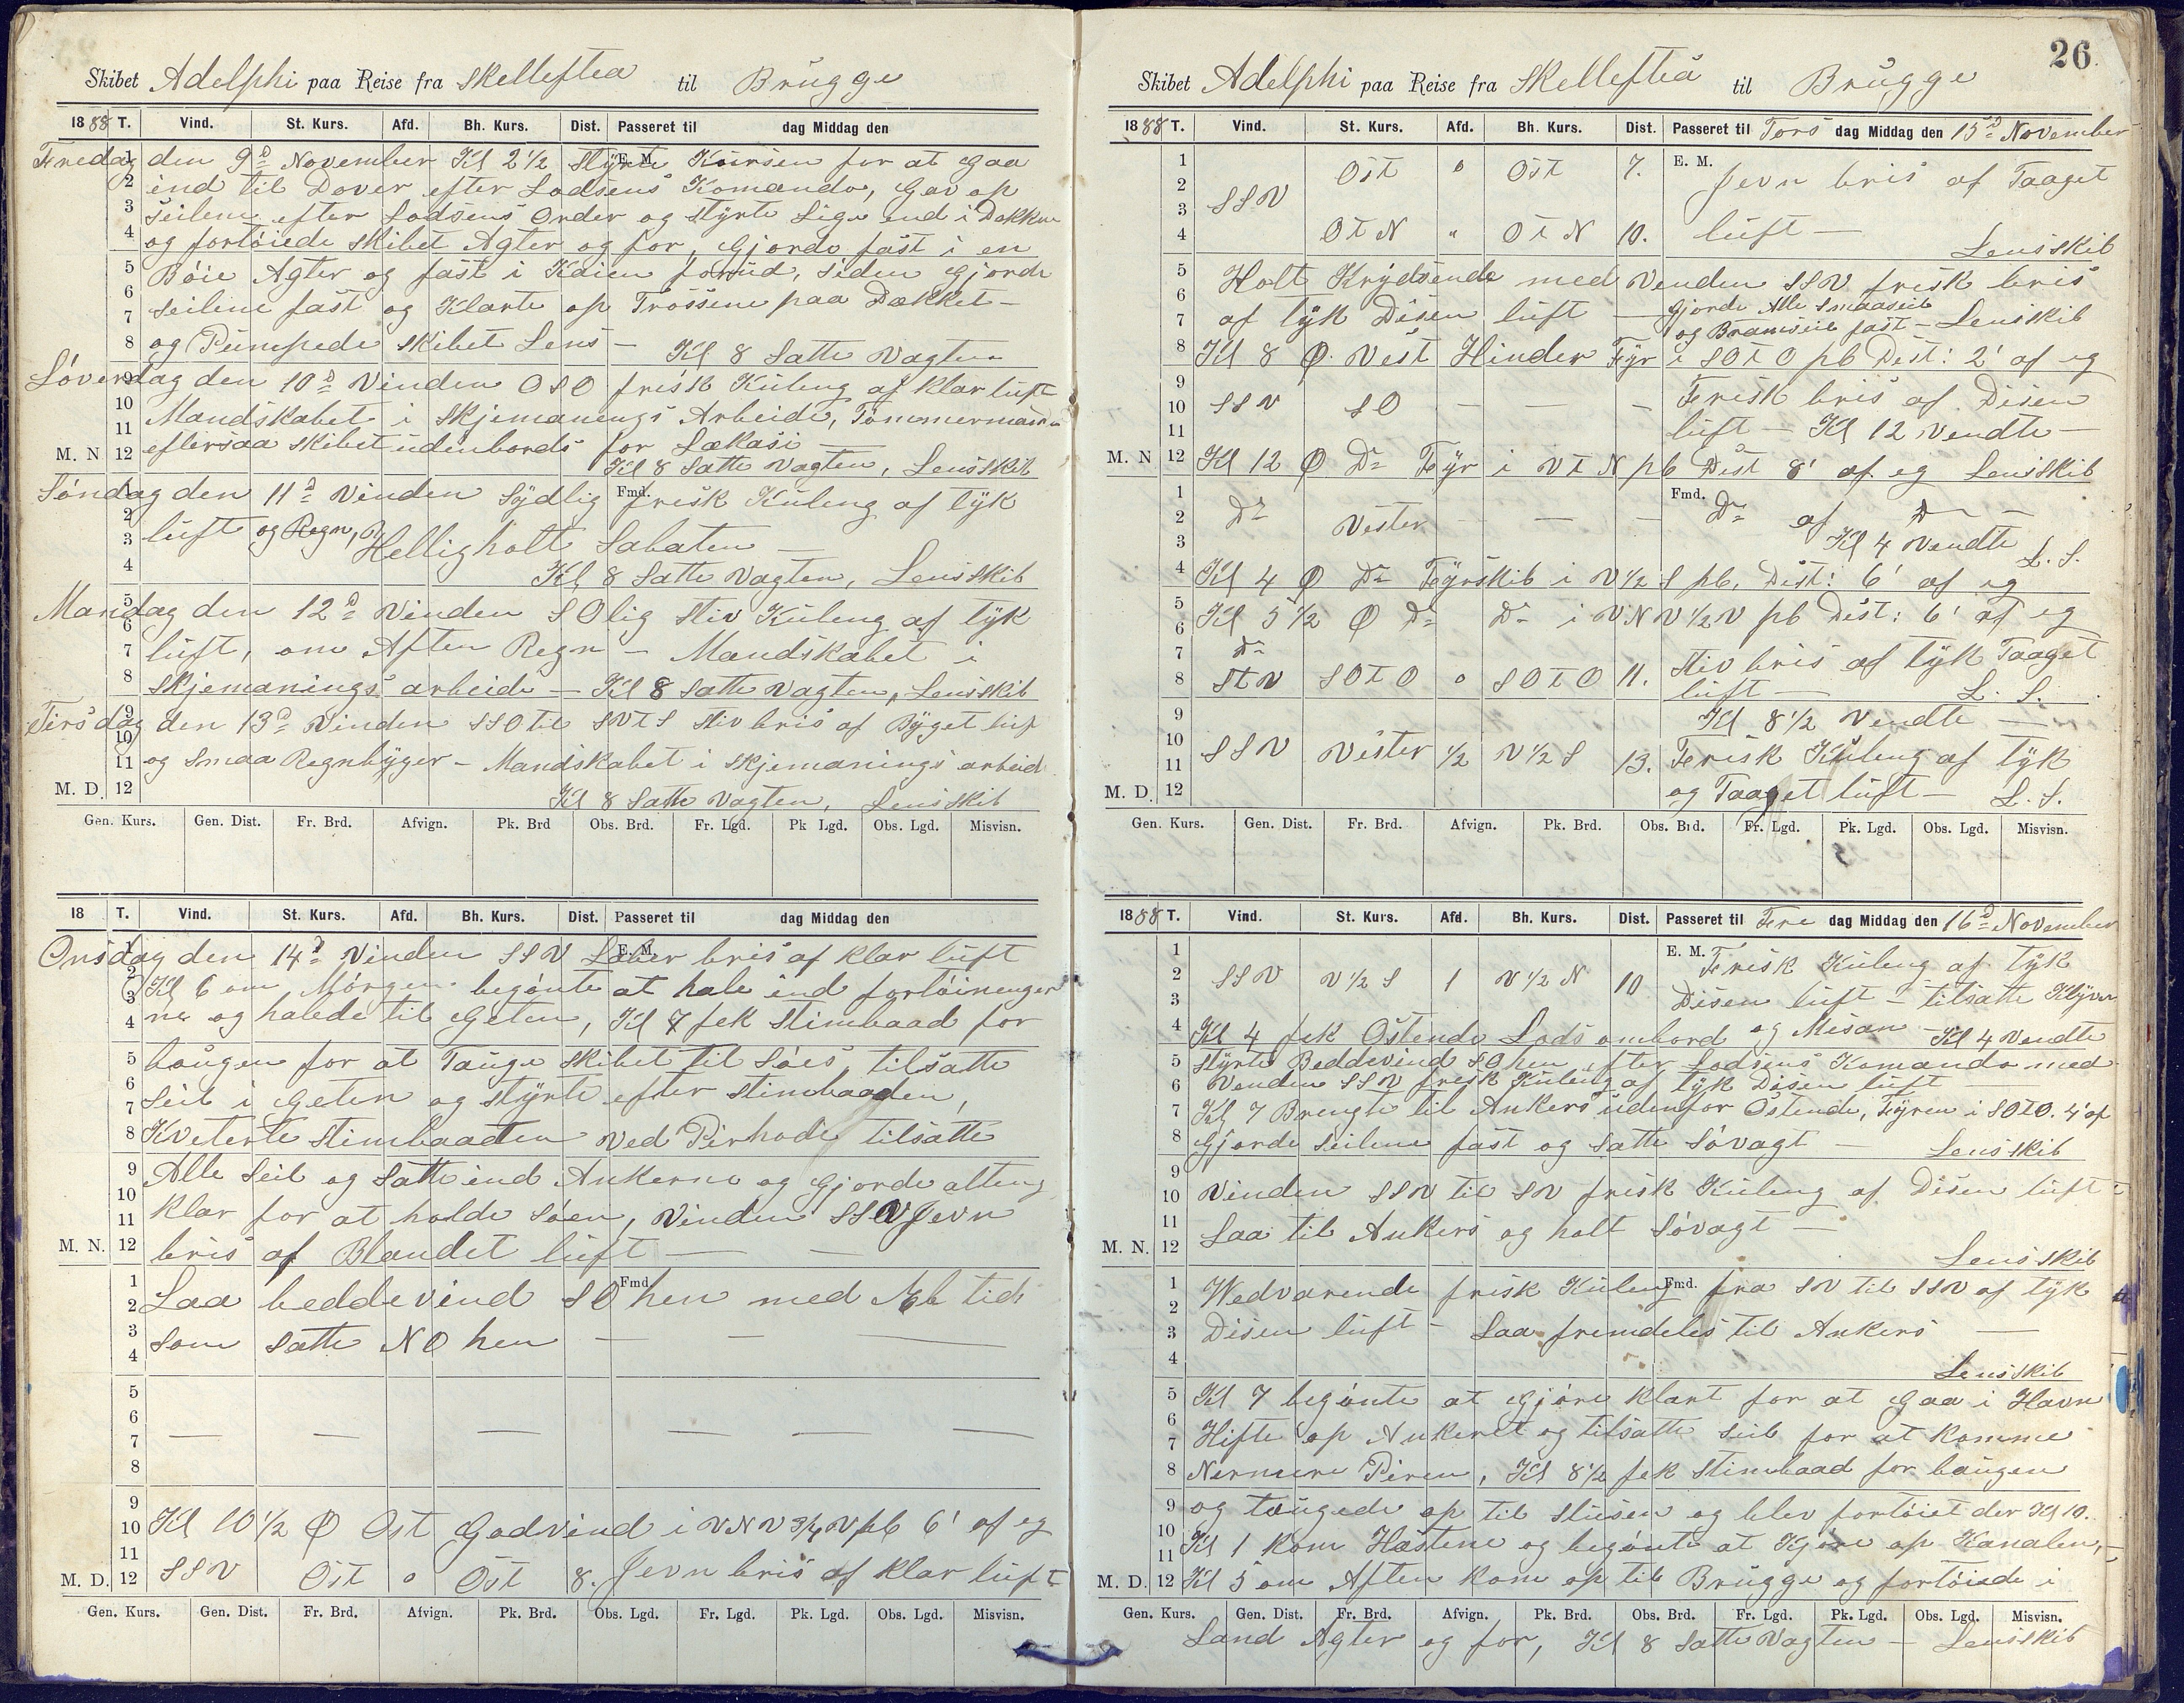 Skibet Adelphi paa Reise fra Skelleftea til Brügge
1888 T. Vind. St. Kurs. Afd. Bh. Kurs. Dist. Passeret til dag Middag den
Fredag den 9d November Kl 2 1/2 styrte Kursen for at gaa
ind til Dover efter Lodsens Komando, Gav op
Seilene efter Lodsens Order og styrte Lige ind i Dokken
og fortöiede skibet Agter og for, Gjorde fast i en
Böie Agter og fast i Kaien forud, siden Gjorde
seilene fast og Klarte op Trossene paa Dækket -
og Pumpede skibet Lens - Kl 8 Satte Vagten
Löverdag den 10d Vinden OSO frisk Kuling af klar luft
Mandskabet i skjemanings Arbeide, Tömmermanden
eftersaa skibet udenbords for Lækasi -
M. N Kl 8 Satte Vagten, Lens skib
Söndag den 11d Vinden Sydlig frisk Kuling af tyk
luft og Regn, Helligholt Sabaten -
Kl 8 Satte Vagten, Lens skib
Mandag den 12d Vinden SOlig Stiv Kuling af tyk
luft, om Aften Regn - Mandskabet i
skjemanings arbeide - Kl 8 satte Vagten, Lens skib
Tirsdag den 13d Vinden SSO til SVtS stiv bris af Byget luft
og smaa Regnbyger - Mandskabet i skjemanings arbeid
M. D. Kl 8 Satte Vagten, Lens skib
Gen. Kurs. Gen. Dist. Fr. Brd. Afvign. Pk. Brd Obs. Brd. Fr. Lgd. Pk Lgd. Obs. Lgd. Misvisn.
18 T. Vind. St. Kurs. Afd. Bh. Kurs. Dist. Passeret til dag Middag den
Onsdag den 14d Vinden SSV Laber bris af klar luft
Kl 6 om Morgen begönte at hale ind fortöininger
ne og halede til Geten, Kl 7 fek Stimbaad for
baugen for at Tauge skibet til Söes tilsatte
Seil i Geten og styrte efter Stimbaaden,
Kveterte Stimbaaden ved Pirhode tilsatte
Alle Seil og satte ind Ankerne og Gjorde alting
klar for at holde Söen, Vinden SSV Jevn
M. N. bris af Blandet luft -
Laa beddevind SO hen med Æb tide
Som satte NO hen - - -
Kl 10 1/2 Ø Ost Godvind i VNV 3/4 V pb 6' af eg
M. D. SSV Ost o Ost 8. Jevn bris af klar luft
Gen. Kurs. Gen. Dist. Fr. Brd. Afvign. Pk. Brd. Obs. Lgd. Fr. Lgd. Pk. Lgd. Obs. Lgd. Misvisn.
26
Skibet Adelphi paa Reise fra Skelleftea til Brügge
1888 T. Vind. St. Kurs. Afd. Bh. Kurs. Dist. Passeret til Tors dag Middag den 15d November
E. M.
SSV Ost o Ost 7. Jevn bris af Taaget
OtN " OtN 10. luft - Lens skib
Holt Krydsende med Venden SSV frisk bris
af tyk Disen luft - Gjorde Alle Smaaseil
og Bramseil fast - Lens skib
Kl 8 Ø. Vest Hinder Fyr i SOtO pb Dist: 2' af eg
SSV SO - - - Frisk bris af Disen
luft - Kl 12 Vendte -
M. N Kl 12 Ø Do Fyr i VtN pb Dist 8' af eg Lens skib
Fmd.
Do Vester - - - Do af Do -
Kl 4 Vendte L. S.
Kl 4 Ø Do Fyrskib i V 1/2 S pb. Dist: 6' af eg
Kl 5 1/2 Ø Do Do i VNV 1/2 V pb Dist: 6' af eg
Do
StV SOtO o SOtO 11. Stiv bris af tyk Taaget
luft - L. S.
Kl 8 1/2 Vendte -
SSV Vester 1/2 V 1/2 S 13. Frisk Kuling af tyk
M. D. og Taaget luft - L. S.
Gen. Kurs. Gen. Dist. Fr. Brd. Afvign. Pk. Brd. Obs. Brd. Fr. Lgd. Pk. Lgd. Obs. Lgd. Misvisn.
1888 T. Vind. St. Kurs. Afd. Bh. Kurs. Dist. Passeret til Fre dag Middag den 16d November
E. M.
SSV V 1/2 S 1 V 1/2 N 10 Frisk Kuling af tyk
Disen luft - tilsatte Klyver
og Misan - Kl 4 Vendte
Kl 4 fek Ostende Lods ombord
styrte Beddevind SO hen efter Lodsens Komando med
Venden SSV frisk Kuling af tyk Disen luft
Kl 7 Brengte til Ankers udenfor Ostende, Fyren i SOtO. 4' af
Gjorde seilene fast og satte Sövagt - Lens skib
Vinden SSV til SV frisk Kuling af Disen luft
Laa til Ankers og holt Sövagt -
M. N. Lens skib
Wedvarende frisk Kuling fra SV til SSV af tyk
Disen luft - Laa fremdeles til Ankers -
Lens skib
Kl 7 begönte at Gjöre klart for at Gaa i Havn
Hifte op Ankeret og tilsatte Seil for at komme
Nermere Piren, Kl 8 1/2 fek Stimbaad for baugen
og taugede op til Slusen og blev fortöiet der Kl 10.
Kl 1 kom Hästene og begönte at Kjöre op Kanalen,
M. D. Kl 5 om Aften kom op til Brügge og fortöiede i
Gen. Kurs. Gen. Dist. Fr. Brd. Afvign. Pk. Brd. Obs. Brd. Fr. Lgd. Pk. Lgd. Obs. Lgd. Misvisn.
Land Agter og for, Kl 8 Satte Vagten - Lens skib